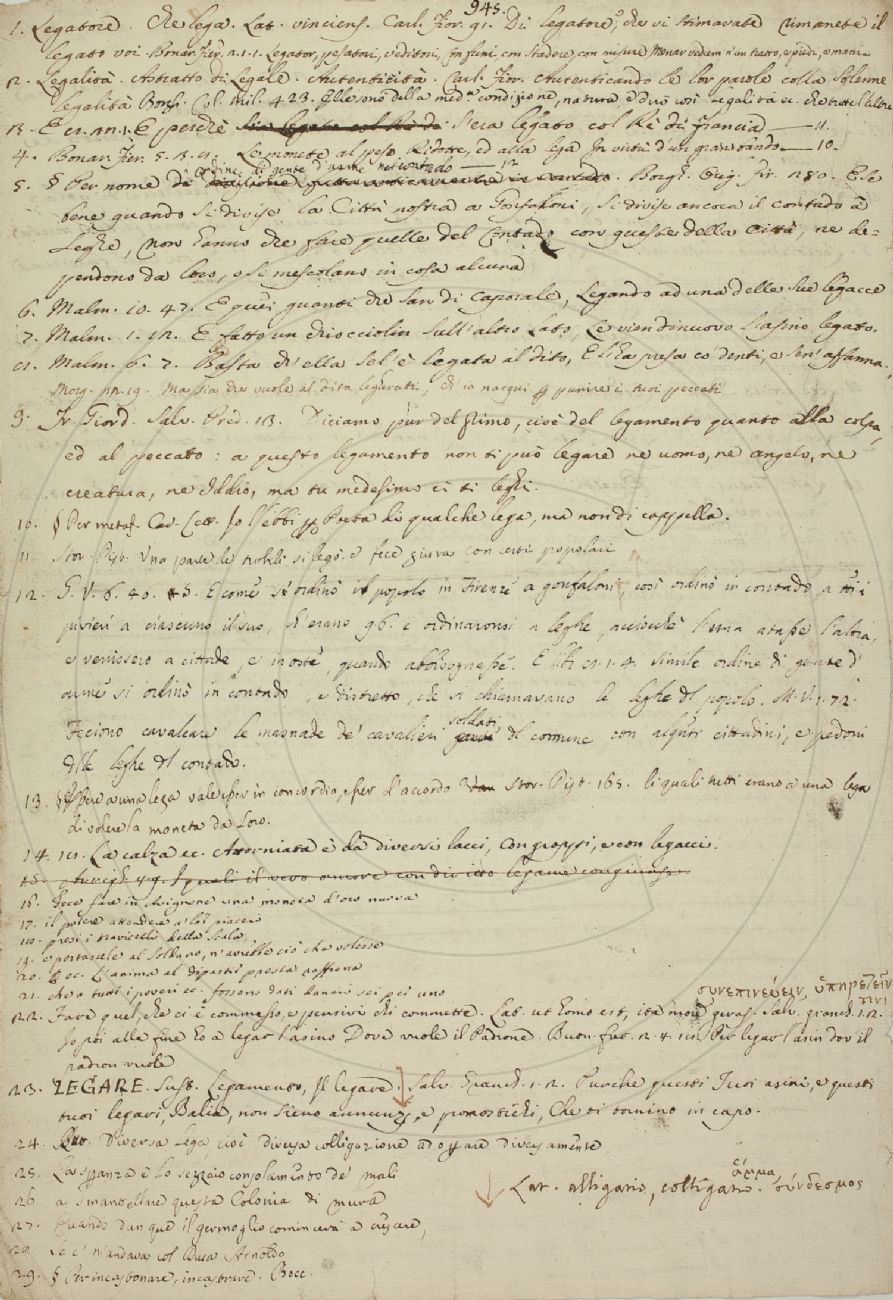 945.
1. Legatore. Che lega. Lat. vinciens. Carl. Fior. 91. Di legatore, che vi stimavate rimanete il
legato voi. Bonar. Fier. 2. 1. 1. Legator, pesatori, veditori, con stadere, con misure
2. Legalità. Astratto di Legale. Autenticità. Carl. Fior. Autenticando le lor parole colla solenne
legalità Borgh. Col. Mil. 423. della med.ª condizione, natura, e così legalità
3. E perchè s'era legato col Rè di Francia — 11.
4. Bonar. Fier. 5. 3. Le monete al peso Ridotte, ed alla lega In virtù d'un gran bando — 10.
ordine di gente d'arme nel contado — 12
5. § Per nome di Borgh. Orig. Fir. 280. E se
bene quando si divise la Città nostra a Gonfaloni, si divise ancora il contado a
Leghe, non hanno che fare quelle del Contado con queste della Città, ne de=
pendono da loro, o si mescolano in cosa alcuna
6. Malm. 10. 47. E quei guanti che san di caporale, Legando ad una delle sue legacce
7. Malm. 1. E fatto un chiocciolin sull'altro lato, Le vien di nuovo l'asino legato.
8. Malm. 6. 7. Basta ch'ella se l'è legata al dito, E l'ha presa co' denti, e sen' affanna.
Morg. 19. Ma sia che vuole al dito legherati, ch'io nacqui p punire i tuoi peccati
9. Fr. Giord. Salv. Pred. 13. Diciamo pur del primo, cioè del legamento quanto alla colpa,
ed al peccato: a questo legamento non ti può legare ne uomo, ne angelo, ne
creatura, ne Iddio, ma tu medesimo ci ti leghi.
10. § Per metaf. Car. Lett. Io l'ebbi p Poeta di qualche lega, ma non di cappella.
11. Stor. Pist. Una parte de nobili si legò, e fece giura con certi popolari
12. G. V. 6. 40. E come s'ordinò il popolo in Firenze a gonfaloni, così ordinò in contado, a tti i
pivieri a ciascuno il suo, ch'erano 96. e ordinaronsi a leghe, acciocchè l'una atasse l'altra,
e venissero a cittade, e in oste, quando abbisognasse. E lib. 8. 1. 4. simile ordine di gente d'
arme si ordinò in contado, e distretto, che si chiamavano le leghe dl popolo. M. V. 1. 72.
Feciono cavalcare le masnade de' cavalieri soldati dl comune con alquti cittadini, e pedoni
dlle leghe dl contado.
13. § Essere a una lega vale esser in concordia, esser d'accordo Stor. Pist. 165. li quali tutti erano a una lega
di volere la moneta da loro.
14. La calza ec. Attorniata è da diversi lacci, con groppi, e con legacci.
15. I quali il vero amore con diritto legame congiunse
16. Fece fare in Avignone una moneta d'oro nuova
17. il potere attendere a' lor piaceri
18. presi i travicelli della scala,
19. e portassele al Soldano, n'avrebbe ciò che volesse
20. L'anima al dipartir presta raffrena
21. che a tutti i poveri ec. fossono dati danari sei per uno
συνεπινεύειν, ὑπηρετεῖν τινὶ
22. Fare quel, che ci è commesso, e pensivi chi commette. Lat. ut homo est, ita geras. Salv. Granch. 1. 2.
Io poi alla fine Ho a legar l'asino Dove vuole il Padrone. Buon. Fier. 2. 4. Per legar l'asin dov'il
padron vuole
23. LEGARE. Sust. Legamento, Il legare. Salv. Granch. 1. 2. Purchè questi Tuoi asini, e questi
tuoi legari, Balia, non sieno annunzj, e pronostichi, Che ti tornino in capo.
24. Diversa Lega, cioè diversa colligazione ad opare diversamente
25. La spanza è lo sezzaio consolamento de' mali
26. a smantellare questa Colonia di mura
ἅμμα
Lat. alligatio, colligatio. σύνδεσμος
27. Quando dunque il germoglio comincerà a crescere,
28. Se n'andava col Duca Arnoldo
29. § Per incastonare, incastrare. Bocc.